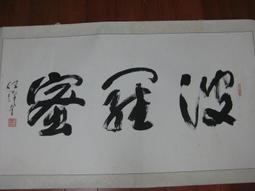 波羅蜜